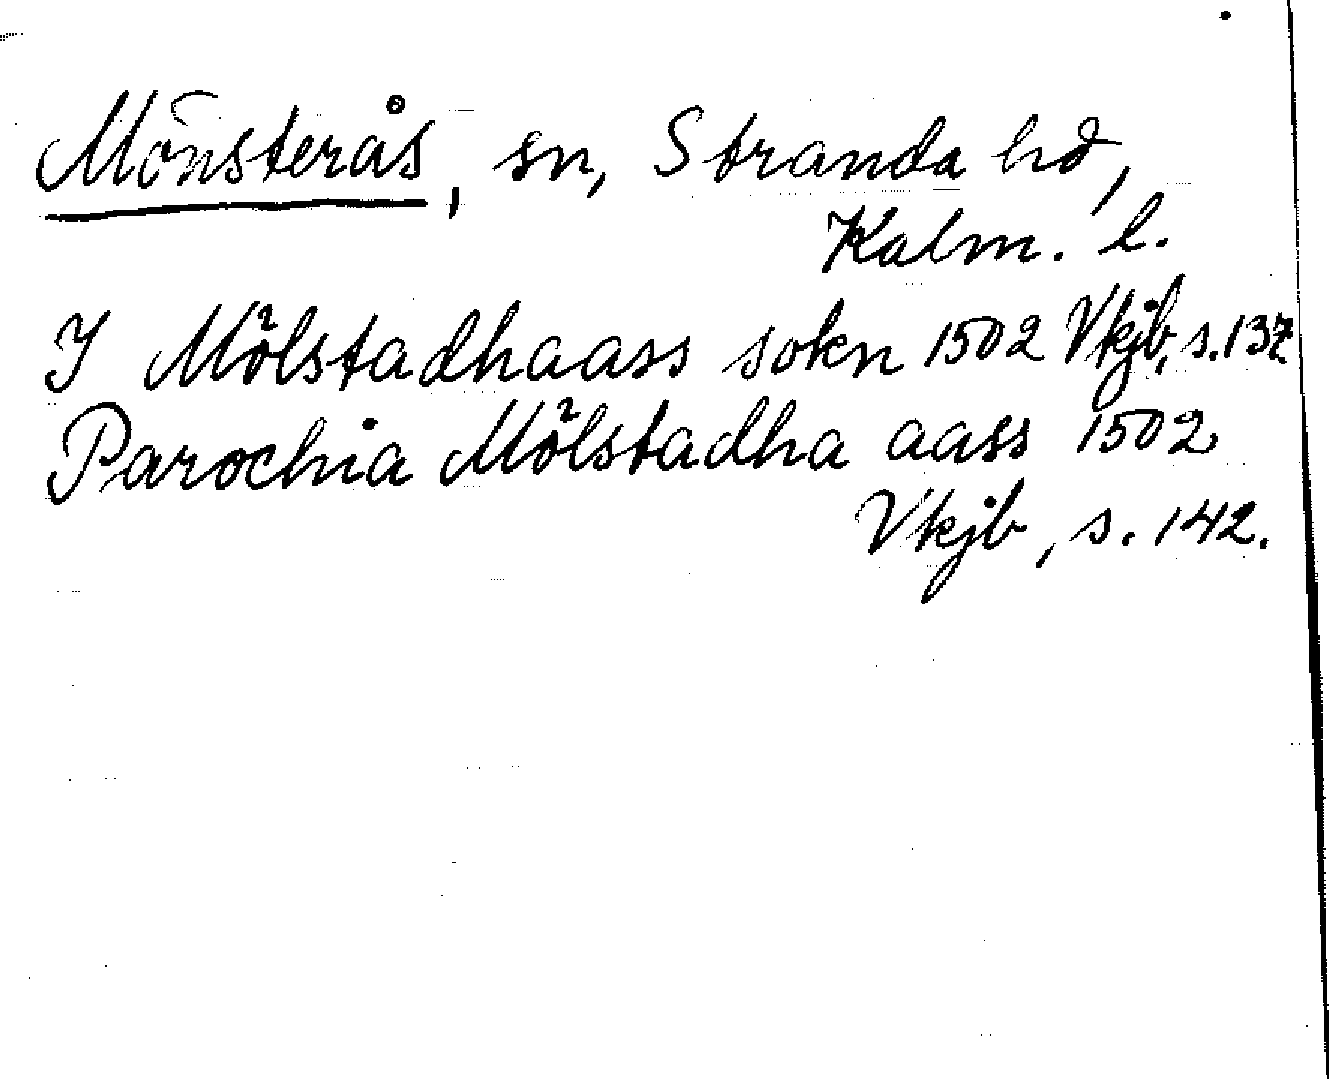 Mönsterås, sn, Stranda hd,
Kalm. l.
I Mölstadhaass sokn 1502 Vkjb, s. 137
Parochia Mölstadha aass 1502
Vkjb, s. 142.